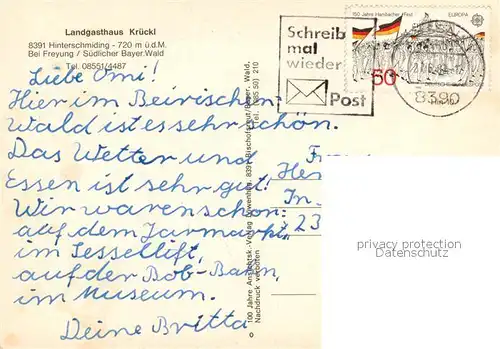 Landgasthaus Krückl
8391 Hinterschmiding - 720 m ü.d.M.
Bei Freyung / Südlicher Bayer.Wald
Tel. 08551/4487
Liebe Omi!
Hier im Beirischen
Wald ist es sehr schön.
Das Wetter und
Essen ist sehr gut!
Wir waren schon:
auf dem Jarmarkt,
im Sessellift,
auf der Bob-Bahn,
im Museum.
Deine Britta
Schreib
mal
wieder
Post
150 Jahre Hambacher Fest
EUROPA
50
8390
100 Jahre Ansichtsk.-Verlag
Nachdruck verboten
In
23
privacy protection
Datenschutz